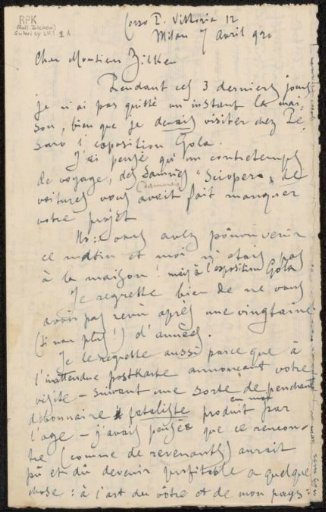 RPK
Corso P. Vittoria 12
Milan 7 avril 920
Cher Monsieur Zilken
Pendant ces 3 derniers jours
je n'ai pas quitté un instant la mai-
son, bien que je devais visiter chez Pe-
saro l'exposition Gola.
J'ai pensé qu'un contretemps
de voyage, des "Sciopero" de
voitures vous avait fait manquer
votre projet
No: vous avez pû venir
ce matin et moi n'étais pas
à la maison! mais à l'exposition Gola
Je regrette bien de ne vous
avoir pas revu après une vingtaine
(si non plus!) d'années.
Je le regrette aussi parce que à
l'inattendue postkarte annonçant votre
visite - suivant une sorte de penchant
débonnaire & fataliste en moi produit par
l'age - j'avais pensée que ce rencon-
tre (comme de revenants) aurait
pû et dû devenir profitable a quelque
chose: à l'art du vôtre et de mon pays-